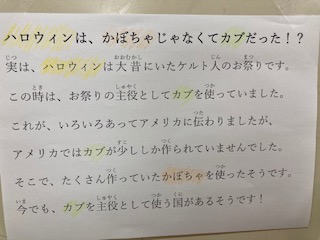 ハロウィンは、かぼちゃじゃなくてカブだった!?
実は、ハロウィンは大昔にいたケルト人のお祭りです。
この時は、お祭りの主役としてカブを使っていました。
これが、いろいろあってアメリカに伝わりましたが、
アメリカではカブが少ししか作られていませんでした。
そこで、たくさん作っていたかぼちゃを使ったそうです。
今でも、カブを主役として使う国があるそうです!